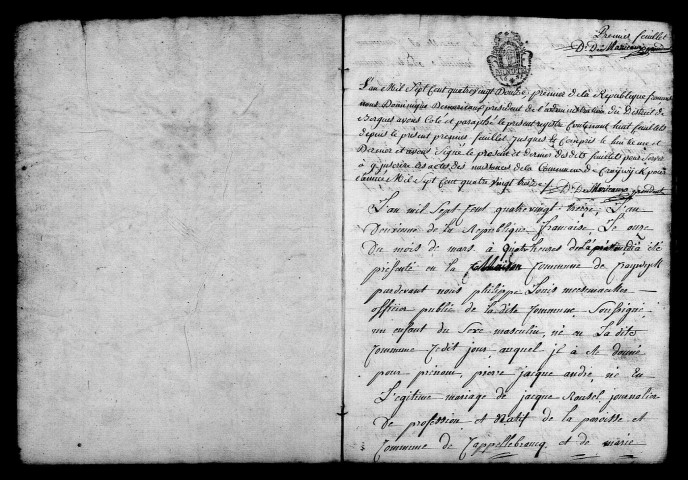 Premier feuillet
L'an Mil Sept Cent quatre vingt Douze, premier de la Republique francaise
nous Dominique Demarieaux president de l'administration du District de
Bergues avons Coté et paraphé le present registre Contenant huit feuillets
depuis le present premier feuillet jusques et Compris le huitieme et
Dernier et avons Signé le present et dernier des dits feuillets pour servir
à y inscrire les actes des naissances de la Commune de Craywyck pour
l'année Mil Sept Cent quatre vingt treize
L'an mil Sept Cent quatre vingt treize, L'an
Deuxieme de la Republique francaise, Le onze
Du mois de mars à quatre heures de à été
présenté en la Maison Commune de Craywyck
pardevant nous philippe Louis
officier public de la dite Commune Soussigné
un enfant du Sexe masculin, né en La dite
Commune Cedit jour auquel il à été donné
pour prénom, pierre jacque andré, né En
Légitime mariage de jacque Rousel, journalier
De profession et Natif de la paroisse et
Commune de Cappellebroucq et de marie